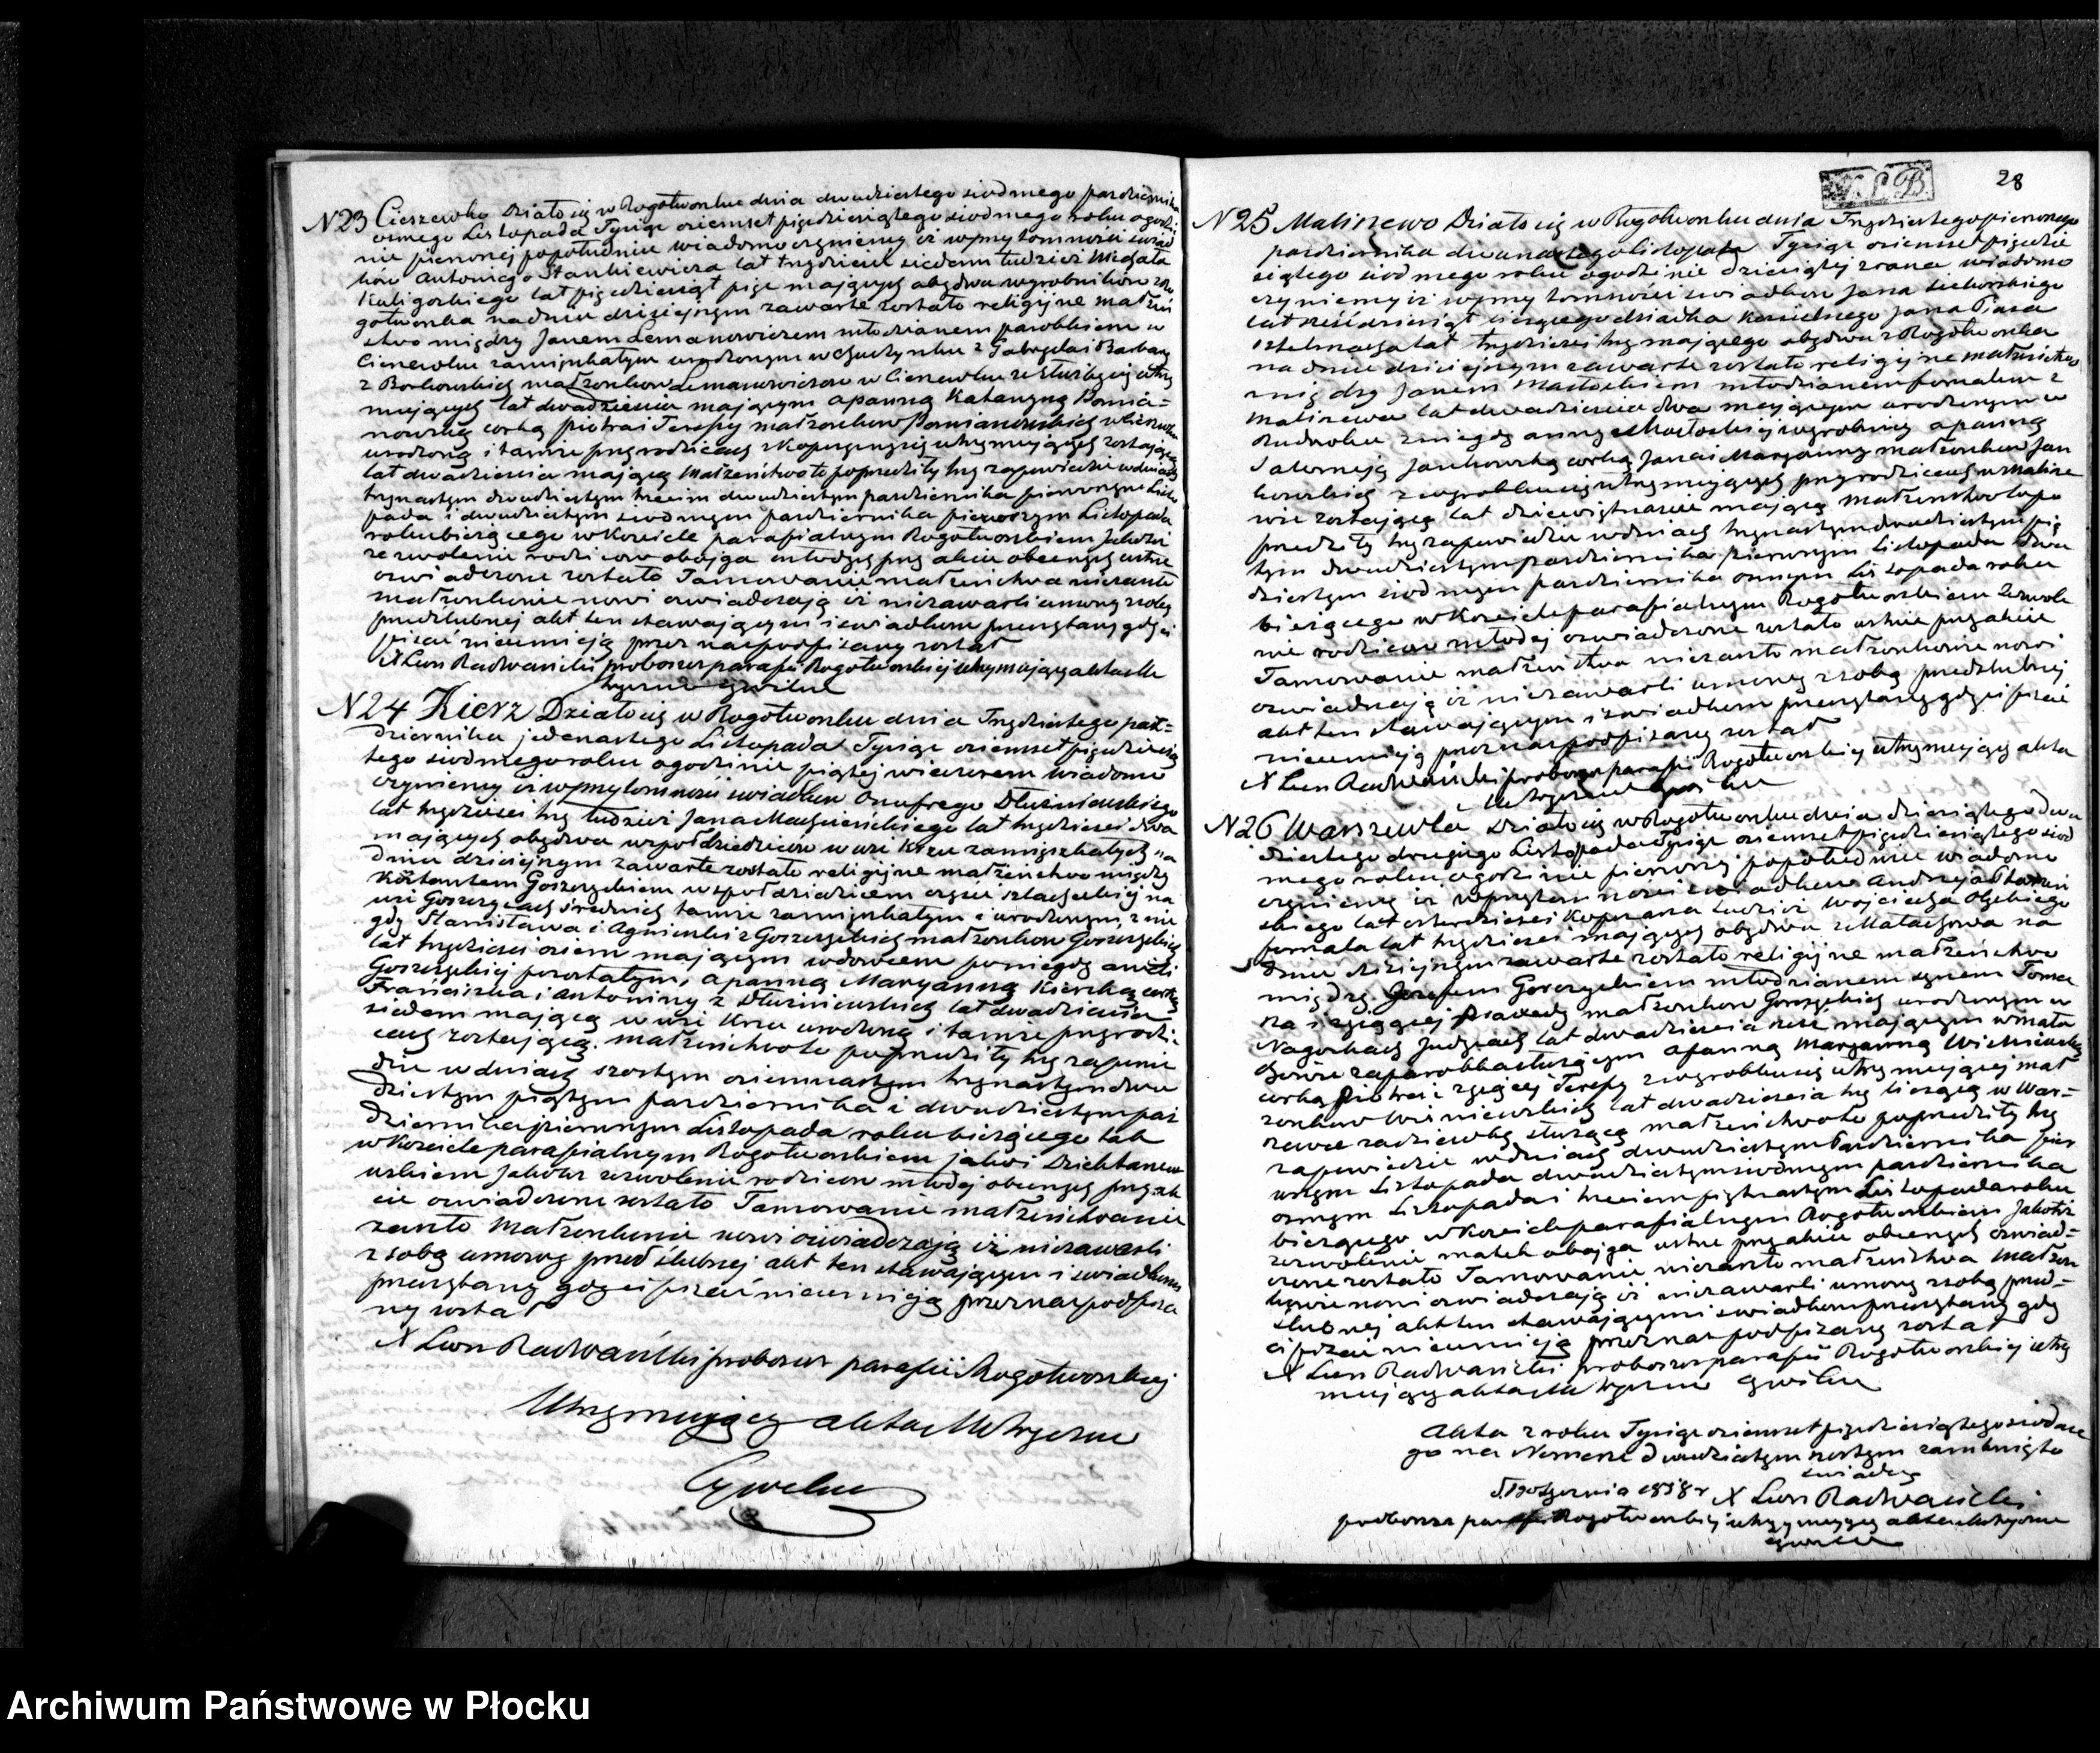 N23 Cieszewko Działo się w Rogotworsku dnia dwudziestego siodmego pazdziernika
osmego Listopada Tysiąc osiemset pięcdziesiątego siodmego roku o godzi
nie pierwszej popołudniu wiadomo czyniemy iż w przytomności swiad
ków Antoniego Stankiewicza lat trzydzieści siedem tudzież Michała
Kuligoskiego lat pięcdziesiąt pięc mających obydwu wyrobników z Ro
gotworska na dniu dzisiejszym zawarte zostało religijne małzeń
stwo między Janem Lemanowiczem młodzianem parobkiem w
Ciszewku zamieszkałym urodzonym w
z Borkowskich małzonkow Lemanowiczow w Cieszewku ze służby się utrzy
mujących lat dwadzieścia mającym a panną Katarzyną Pomia=
nowską corką Piotra i Teresy małzonkow Pomianowskich w Cieszewku
urodzoną i tamze przy rodzicach utrzymujących zostającą
lat dwadzieścia mającą Małzeństwo to poprzedziły trzy zapowiedzie w dniach
trzynastym dwudziestym trzecim dwudziestym pazdziernika pierwszym Listo
pada i dwudziestym siodmym pazdziernika pierwszym Listopada
roku bieżącego w Kościele parafialnym Rogotworskiem Jakoż i
zezwolenie rodzicow obojga młodych przy akcie obecnych ustne
oswiadczone zostało Tamowanie małzeństwa niezaszło
małzonkowie nowi oswiadczają iż niezawarli umowy z sobą
przedślubnej akt ten stawającym i swiadkom przeczytany gdy ci
pisać nieumieją przez nas podpisany został
X Leon Radwański proboszcz parafii Rogotworskiej utrzymujący akta
N24 Kierz Działo się w Rogotworsku dnia Trzydziestego paz=
dziernika jedenastego Listopada Tysiąc osiemset pięcdziesią
tego siodmego roku o godzinie piątej wieczorem wiadomo
czyniemy iż w przytomności swiadkow Onufrego Dłuzniewskiego
lat trzydzieści trzy tudzież Jana lat trzydzieści dwa
mających obydwu współdziedziców w wsi Krzu zamieszkałych na
dniu dzisiejszym zawarte zostało religijne małzeństwo między
Gosczyckiem współdziedzicem części szlacheckiej na
wsi Goszczycach średnich tamze zamieszkałym i urodzonym z nie
gdy Stanisława i Agnieszki z Goszczyckich małzonkow Goszczyckich
lat trzydzieści osiem mającym wdowcem po niegdy
Goszczyckiej pozostałym, a panną Maryanną Kierską corką
Franciszka i Antoniny z Dłuzniewskich lat dwadzieścia
siedem mającą w wsi Krzu urodzoną i tamże przy rodzi=
cach zostającą. Małzeństwo to poprzedziły trzy zapowie
dzie w dniach szostym osiemnastym trzynastym dwu
dziestym piątym pazdziernika i dwudziestym paz
dziernika pierwszym Listopada roku bieżącego tak
w Kościele parafialnym Rogotworskiem jako i Dziektarzew
uskiem Jakoż zezwolenie rodzicow młodej obecnych przy ak
cie oswiadczone zostało Tamowanie małzeństwa nie
zaszło Małzonkowie nowi oswiadczają iż niezawarli
z sobą umowy przed ślubnej akt ten stawającym i swiadkom
przeczytany gdy ci pisać nieumieją przez nas podpisa
ny został
X Leon Radwański proboszcz parafii Rogotworskiej
Utrzymujący akta Metryczne
Cywilne
28
N25 Maliszewo Działo się w Rogotworsku dnia Trzydziestego pierwszego
pazdziernika dwunastego Listopada Tysiąc osiemset pięcdzie
siątego siodmego roku o godzinie dziesiątej z rana wiadomo
czyniemy iż w przytomności swiadkow Jana Sichorskiego
lat sześćdziesiąt liczącego dziadka Koscielnego Jana Piasa
sztelmacha lat trzydzieści trzy mającego obydwu z Rogotworska
na dniu dzisiejszym zawarte zostało religijne małzeństwo
między Janem młodzianem fornalem z
Maliszewa lat dwadzieścia dwa mającym urodzonym w
z niegdy Anny wyrobnicy a panną
Jankowską corką Jana i Maryanny małzonkow Jan
kowskich z wyrobku się utrzymujących przy rodzicach w Malisze
wie zostającą lat dziewiętnaście mającą Małzeństwo to po
przedziły trzy zapowiedzie w dniach trzynastym dwudziestym pią
tym dwudziestym pazdziernika pierwszym Listopada dwu
dziestym siodmym pazdziernika osmym Listopada roku
bieżącego w Kościele parafialnym Rogotworskiem Zezwole
nie rodzicow młodej oswiadczone zostało ustnie przy akcie
Tamowanie małzeństwa niezaszło małzonkowie nowi
oswiadczają iż niezawarli umowy z sobą przedślubnej
akt ten stawającym i swiadkom przeczytany gdy ci pisać
nieumieją przez nas podpisany został
X Leon Radwański proboszcz parafii Rogotworskiej utrzymujący akta
Metryczne Cywilne
N26 Warszewka Działo się w Rogotworsku dnia dziesiątego Dwu
dziestego drugiego Listopada Tysiąc osiemset pięcdziesiątego siod
mego roku o godzinie pierwszej popołudniu wiadomo
czyniemy iż w przytomności swiadkow Andrzeja
skiego lat czterdzieści tudzież Wojciecha
fornala lat trzydzieści mających obydwu z Małachowa na
dniu dzisiejszym zawarte zostało religijne małzeństwo
między Jozefem Gorczyckiem młodzianem synem Toma
sza i żyjącej małzonkow Gorczyckich urodzonym w
Nagorkach lat dwadzieścia sześć mającym w Mała
chowie za parobka służącym a panną Maryanną Wisniewską
corką Piotra i żyjącej Teresy z wyrobku się utrzymującej mał
zonkow Wisniewskich lat dwadzieścia trzy liczącą w War=
szewce za dziewkę służącą małzeństwo to poprzedziły trzy
zapowiedzie w dniach dwudziestym Pazdziernika pier
wszym Listopada dwudziestym siodmym pazdziernika
osmym Listopada i trzeciem piętnastym Listopada roku
bieżącego w Kościele parafialnym Rogotworskiem Jakoż
zezwolenie matek obojga ustne przy akcie obecnych oswiad=
czone zostało Tamowanie niezaszło małzeństwa Małzon
kowie nowi oswiadczają iż niezawarli umowy z sobą przed=
ślubnej akt ten stawającym i swiadkom przeczytany gdy
ci pisać nieumieją przez nas podpisany został
X Leon Radwański proboszcz parafii Rogotworskiej utrzy
mujący akta Metryczne Cywilne
Akta z roku Tysiąc osiemset pięcdziesiątego siodme
go na Numerze dwudziestym szostym zamknięto
1858 r X Leon Radwański
proboszcz parafii Rogotworskiej utrzymujący akta Metryczne
Cywilne
Archiwum Państwowe w Płocku